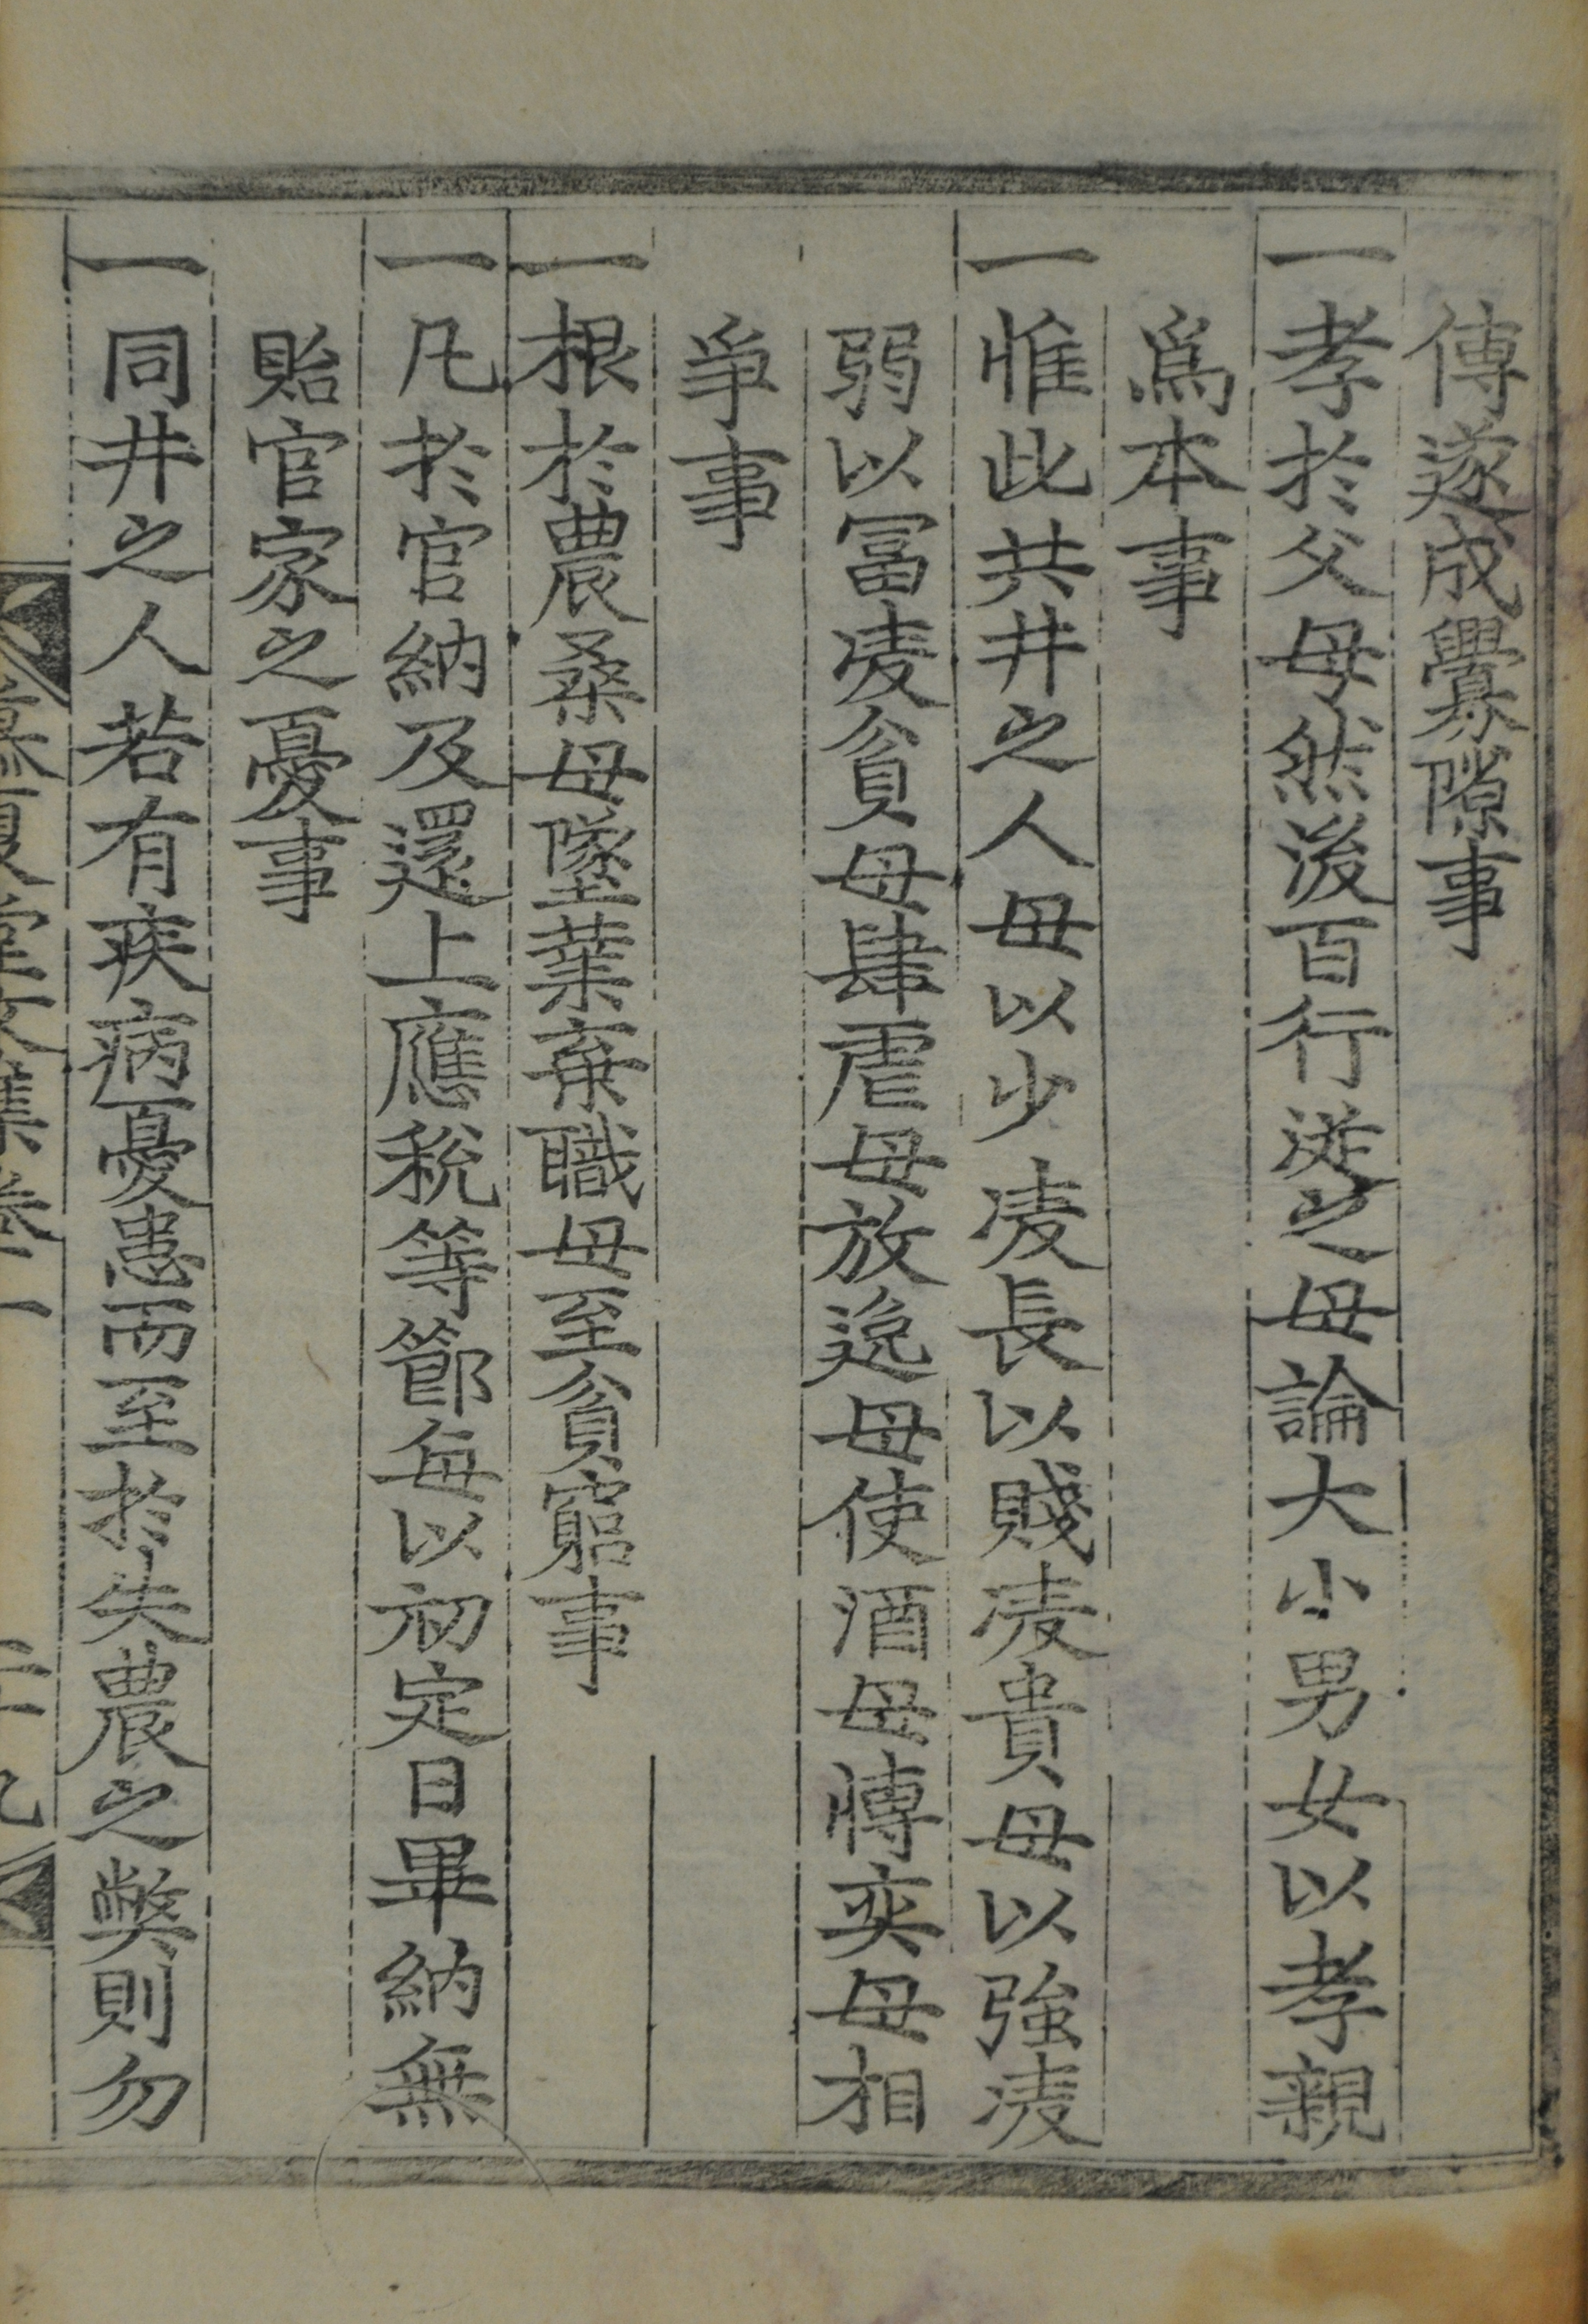 傳遂成釁隙事
一孝於父母然後百行從之毋論大小男女以孝親
爲本事
一惟此共井之人毋以少凌長以賤凌貴毋以強凌
弱以冨凌貧毋肆虐毋放逸毋使酒毋慱奕毋相
爭事
一根於農桑毋墜業棄職毋至貧窮事
一凡於官納及還上應稅等節每以初定日畢納無
貽官家之憂事
一同井之人若有疾病憂患而至於失農之獘則勿
堂文集卷二